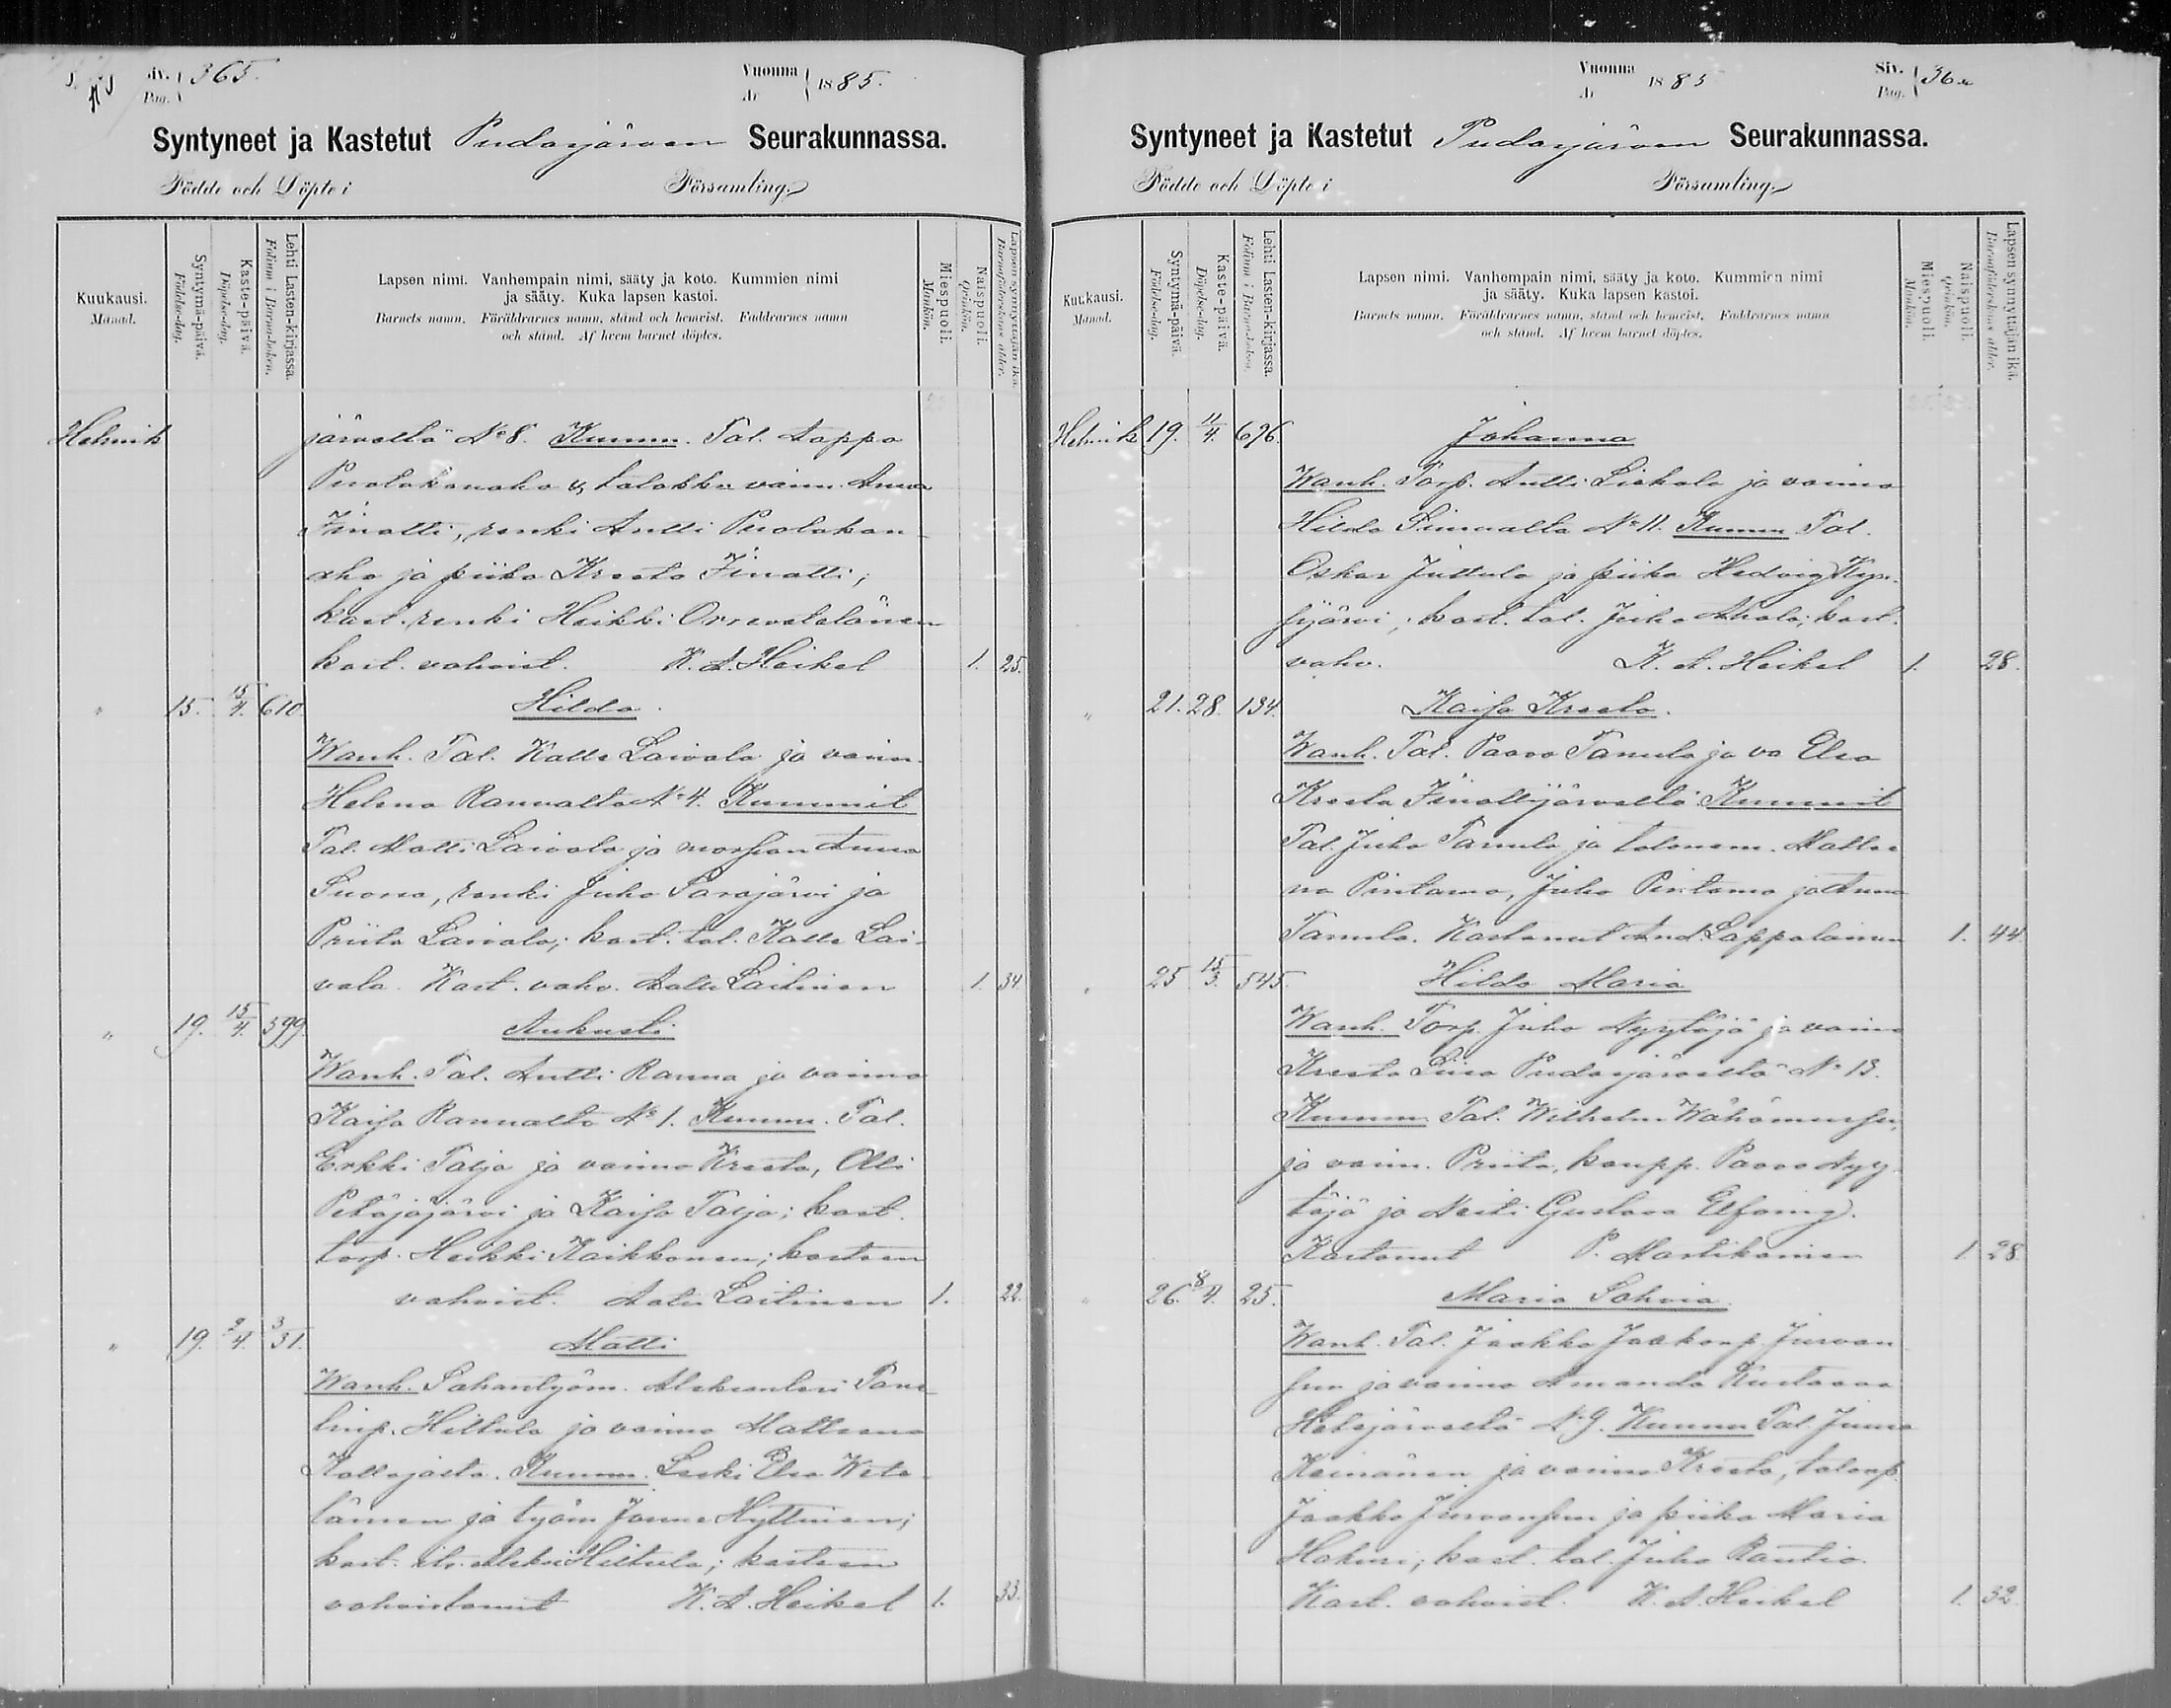 Siv. 365.
Pag.
Vuonna
År 1885.
Syntyneet ja Kastetut Pudasjärven Seurakunnassa.
Födde och Döpte i Församling.
Kuukausi.
Månad.
Syntymä-päivä.
Födelse-dag.
Kaste-päivä.
Döpelse-dag.
Lehti Lasten-kirjassa.
Folium i Barna-boken.
Lapsen nimi. Vanhempain nimi, sääty ja koto. Kummien nimi
ja sääty. Kuka lapsen kastoi.
Barnets namn. Föräldrarnes namn, stånd och hemvist. Faddrarnes namn
och stånd. Af hvem barnet döptes.
Miespuoli.
Mankön.
Naispuoli.
Qvinkön.
Lapsen synnyttäjän ikä.
Barnaföderskans ålder.
Helmik järveltä No 8. Kumm. Tal. Aappo
Puolakanaho, vaim. Anna
Iinatti, renki Antti Puolakan-
aho ja piika Kreeta Iinatti;
kast. renki Heikki
kast. vahvist. K. A. Heikel 1. 25.
" 15. 15/4. 610. Hilda.
Wanh. Tal. Kalle Laivala ja vaim.
Helena Ranualta No 4. Kummit
Tal. Matti Laivala ja morsian Anna
Suorsa, renki Juho Sarajärvi ja
Priita Laivala; kast. tal. Kalle Lai-
vala. Kast. vahv. Laitinen 1. 34.
" 19. 15/4. 599. Aukusti.
Wanh. Tal. Antti Ranua ja vaimo
Kaisa Ranualta No 1. Kumm. Tal.
Erkki Talja ja vaimo Kreeta, Olli
Petäjäjärvi ja Kaisa Talja; kast.
torp. Heikki Kaikkonen; kasteen
vahvist. Laitinen 1. 22.
" 19. 2/4. 331. Matti
Wanh. Sahantyöm. Aleksanteri
Hiltula ja vaimo
Kumm. Leski Elsa
läinen ja työm Janne Hyttinen;
kast. Hiltula; kasteen
vahvistanut K. A. Heikel 1. 33.
Vuonna
År 1885
Siv.
Pag. 36
Syntyneet ja Kastetut Pudasjärven Seurakunnassa.
Födde och Döpte i Församling.
Kuukausi.
Månad.
Syntymä-päivä.
Födelse-dag.
Kaste-päivä.
Döpelse-dag.
Lehti Lasten-kirjassa.
Folium i Barna-boken.
Lapsen nimi. Vanhempain nimi, sääty ja koto. Kummien nimi
ja sääty. Kuka lapsen kastoi.
Barnets namn. Föräldrarnes namn, stånd och hemvist. Faddrarnes namn
och stånd. Af hvem barnet döptes.
Miespuoli.
Mankön.
Naispuoli.
Qvinkön.
Lapsen synnyttäjän ikä.
Barnaföderskans ålder.
Helmik 19. 4. 696. Johanna
Wanh. Torp. Antti Liekola ja vaimo
Hilda No 11. Kumm Tal.
Oskar Juttula ja piika Hedvig
järvi; kast. tal. Juho Ahola; kast.
vahv. K. A. Heikel 1. 28.
" 21. 28. 134. Kaisa Kreeta.
Wanh. Tal. Paavo Tamula ja va Elsa
Kreeta Iinattijärveltä Kummit
Tal. Juho Tamula ja talonem.
na Pintamo, Juho Pintamo ja Anna
Tamula. Kastanut And. Lappalainen 1. 44
" 25 15/3. 545. Hilda Maria
Wanh. Torp. Juho Nyytäjä ja vaimo
Kreeta Liisa Pudasjärveltä No 13.
Kumm Tal. Wilhelm
ja vaim. Priita, kaupp. Paavo Nyy-
täjä ja Neiti Gustava Elfving.
Kastanut P. Martikainen 1. 28
" 26. 8/4. 25. Maria Sohvia
Wanh. Tal. Jaakko Jaakonp. Jurvan
sun ja vaimo Amanda Kustaava
Hetejärveltä No 9. Kumm Tal. Junno
Keinänen ja vaimo Kreeta, talonp.
Jaakko Jurvansun ja piika Maria
kast. tal. Juho Rautio.
Kast. vahvist. K. A. Heikel 1. 32